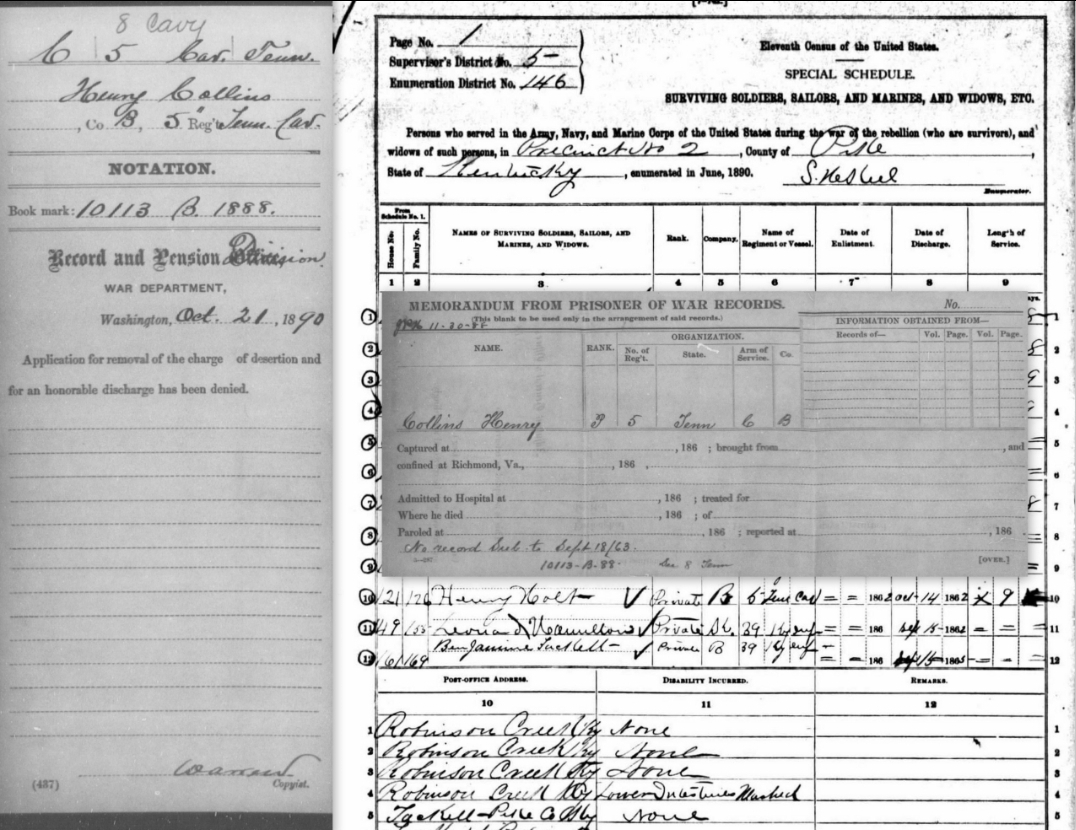 8 Cavy
C | 5 Cav. Tenn.
Henry Collins
, Co B, 5 Reg't Tenn. Cav.
NOTATION.
Book mark: 10113 B. 1888.
Record and Pension Division.
WAR DEPARTMENT,
Washington, Oct. 21, 1890
Application for removal of the charge of desertion and
for an honorable discharge has been denied.
(487)
Copyist.
Page No. 1
Supervisor's District No. 5
Enumeration District No. 146
Eleventh Census of the United States.
SPECIAL SCHEDULE.
SURVIVING SOLDIERS, SAILORS, AND MARINES, AND WIDOWS, ETC.
Persons who served in the Army, Navy, and Marine Corps of the United States during the war of the rebellion (who are survivors), and
widows of such persons, in Precinct No 2, County of Pike,
State of Kentucky, enumerated in June, 1890.
Enumerator.
From Schedule No. 1.
House No. Family No. NAMES OF SURVIVING SOLDIERS, SAILORS, AND MARINES, AND WIDOWS. Rank. Company. Name of Regiment or Vessel. Date of Enlistment. Date of Discharge. Length of Service.
1 2 3 4 5 6 7 8 9
MEMORANDUM FROM PRISONER OF WAR RECORDS. No.
(This blank to be used only in the arrangement of said records.)
11-30-88
NAME. RANK. ORGANIZATION. No. of Reg't. State. Arm of Service. Co. INFORMATION OBTAINED FROM—
Records of— Vol. Page. Vol. Page.
Collins Henry P 5 Tenn C B
Captured at , 186 ; brought from , and
confined at Richmond, Va., , 186 ,
Admitted to Hospital at , 186 ; treated for
Where he died , 186 ; of
Paroled at , 186 ; reported at , 186
No record Sub. to Sept 18/63.
10113-B-88- See 8 Tenn
[OVER.]
10 121 126 Henry Holt Private B 5 Tenn Cav = = 1862 Oct 14 1862 9 10
11 Private 39 Ky = = 186 = = 11
12 Benjamine Tackell Private B 39 Ky = = 186 = = 12
POST-OFFICE ADDRESS. DISABILITY INCURRED. REMARKS.
10 11 12
1 Robinson Creek Ky None 1
2 Robinson Creek Ky None 2
3 Robinson Creek Ky None 3
4 Robinson Creek Ky Lower 4
5 Tackell Pike Co Ky None 5